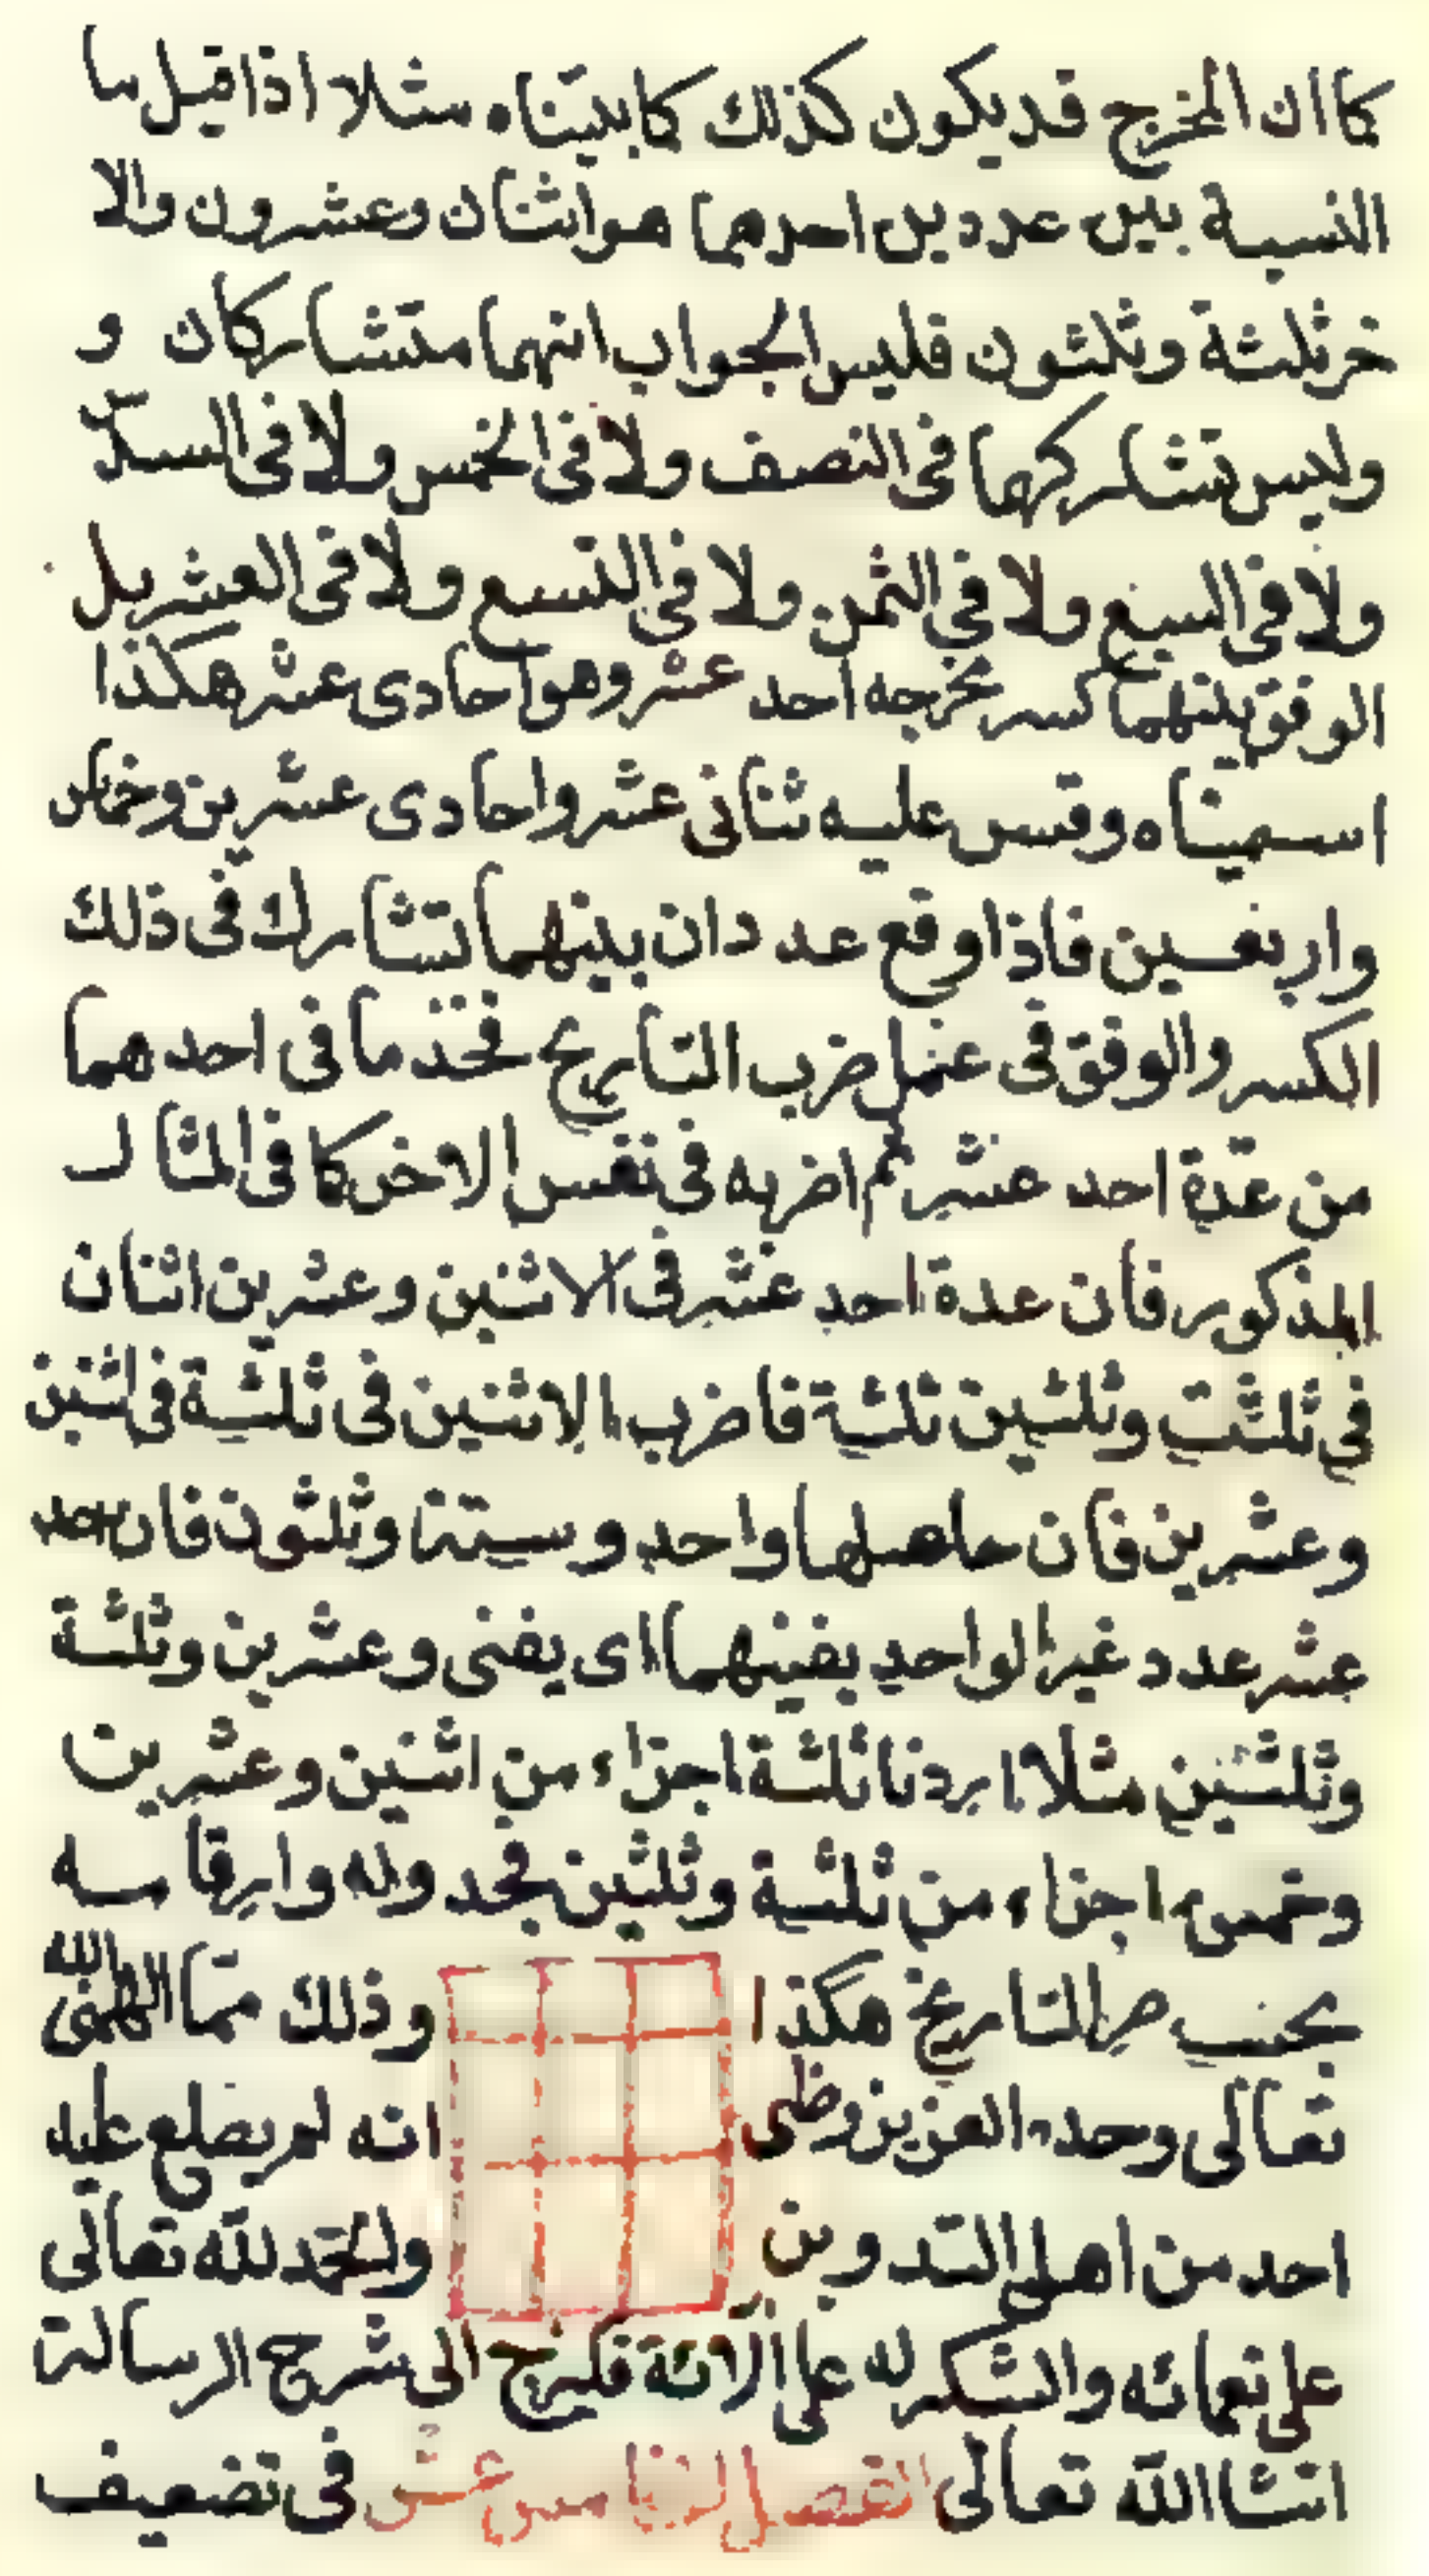 كما ان المخرج قد يكون كذلك كما بيتناه مثلا اذا قيل ما
النسبة بين عددين احدهما هو اثنان وعشرون والا
خر ثلثة وثلثون فليس الجواب انهما متشاركان و
وليس تشاركهما فى النصف ولا فى الخمس ولا فى السدس
ولا فى السبع ولا فى الثمن ولا فى التسع ولا فى العشر بل
الوفق بينهما كسر مخرجه احد عشر وهو احادى عشر هكذا
اسميناه وقس عليه ثنانى عشر واحادى عشرين وخماس
واربعين فاذا وقع عددان بينهما تشارك فى ذلك
الكسر والوفق فى عمل ضرب التاريخ فخذ ما فى احدهما
من عدة احد عشر ثم اضربه فى نفس الاخر كما فى المثال
المذكور فان عدة احد عشر فى الاثنين وعشرين اثنان
فى ثلثت وثلثين ثلثة فاضرب الاثنين فى ثلثة فى اثنين
وعشرين فان حاصلها واحد وستة وثلثون فان احد
عشر عدد غير الواحد يفنيهما اى يفنى وعشرين وثلثة
وثلثين مثلا اردنا ثلثة اجزاء من اثنين وعشرين
وخمس اجزاء من ثلثة وثلثين فجدوله وارقامه
بحسب التاريخ هكذا وذلك مما الهمنى الله
تعالى وحده العزيز وظنى انه لم يطلع عليه
احد من اهل التدوين والحمد لله تعالى
على نعمائه والشكر له على الائه فكنرج الى شرح الرسالة
انشا الله تعالى الفصل الخامس عشر فى تضعيف